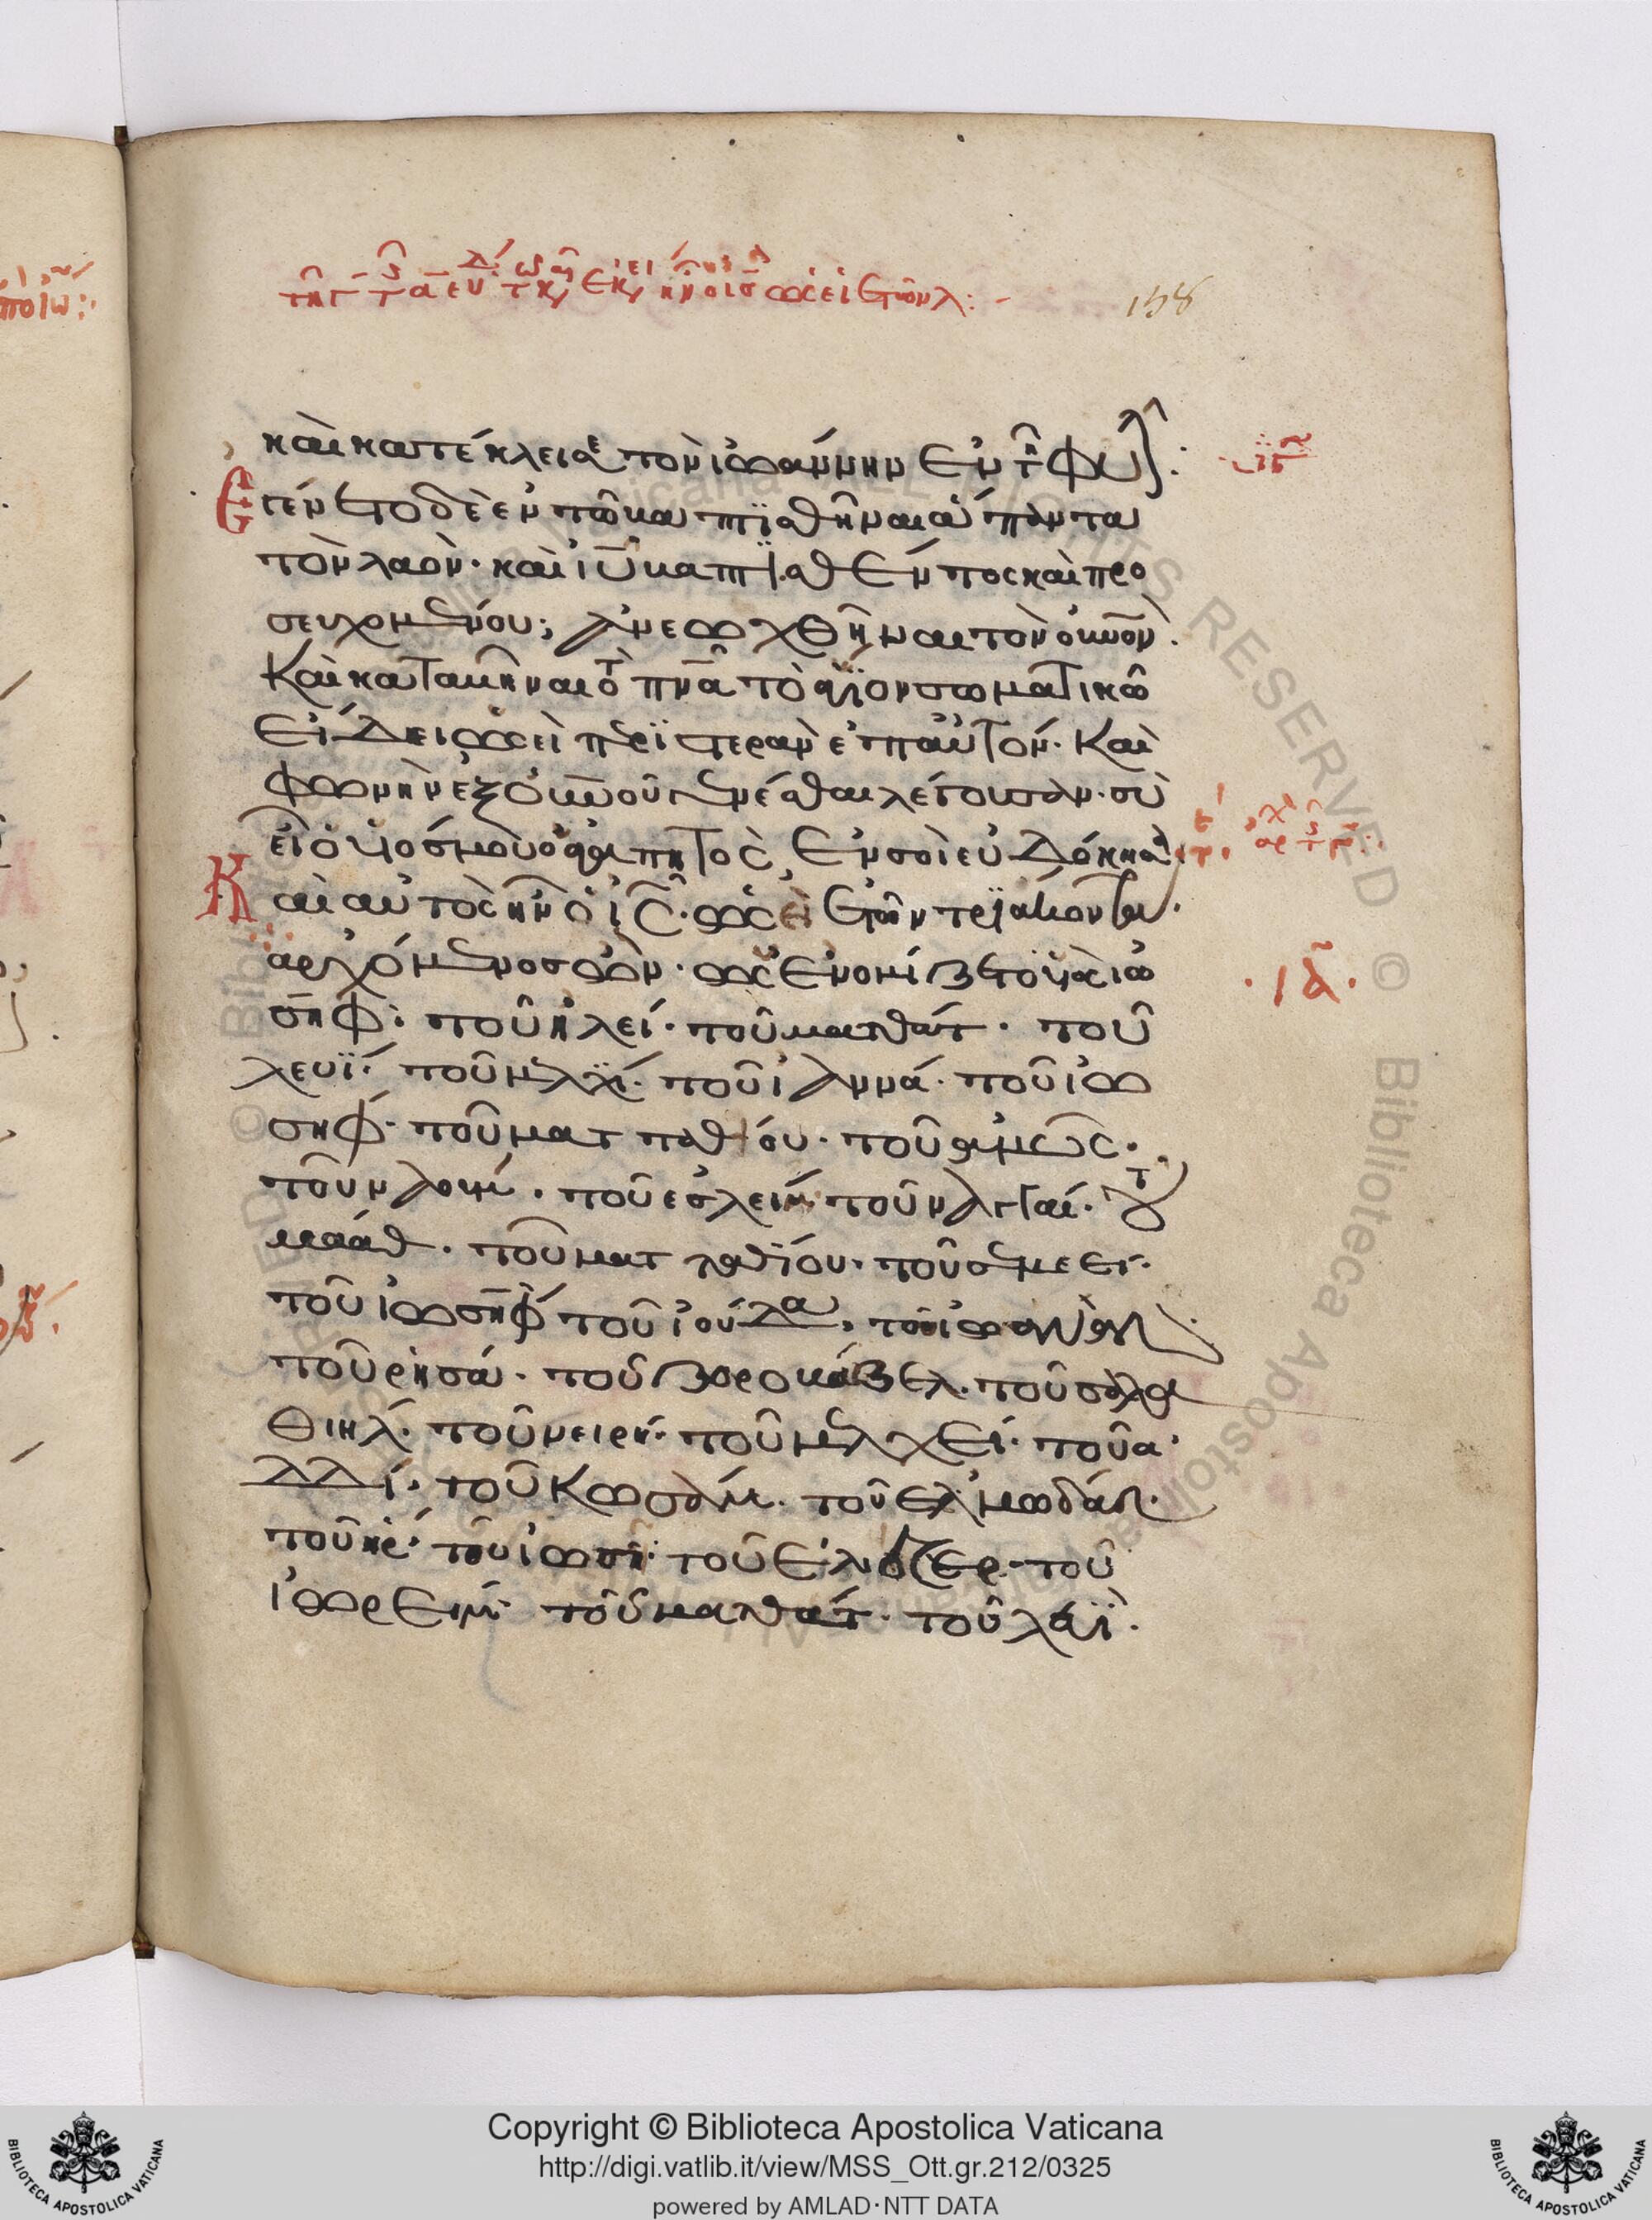 158
καὶ κατέκλεισε τὸν ἰωάννην ἐν τῆ φυλ
Ἐγένετο δὲ ἐν τῶ βαπτϊσθῆναι ἅπαντα
τὸν λαὸν· καὶ ἰῦ βαπτϊσθέντος καὶ προ
σευχομένου; ἀνεωχθῆναι τὸν οὐνὸν·
Καὶ καταβῆναι τὸ πνᾶ τὸ ἅγϊον σωματικῶ
εἴδει ὡσεὶ περϊστερὰν ἐπ αὐτόν· Καὶ
φωνὴν ἐξ οὐνοῦ γενέσθαι λέγουσαν· σὺ
εἶ ὁ υἱός μου ὁ ἀγαπητὸς, ἐν σοὶ εὐδόκησα
Καὶ αὐτὸς ἦν ὁ ἰς· ὡσεὶ ἐτῶν τρϊάκοντα·
ἀρχόμενος ὢν· ὡς ἐνομίζετο υἱὸς ἰω
σὴφ· τοῦ ἠλεί· τοῦ ματθάτ· τοῦ
λευϊ· τοῦ μελχί· τοῦ ἰαννά· τοῦ ἰω
σηφ· τοῦ ματταθίου· τοῦ ἀμὼς·
τοῦ ναούμ· τοῦ ἐσλείμ· τοῦ ναγγαί· τοῦ
μαάθ· τοῦ ματταθϊου· τοῦ σεμεεί·
τοῦ ἰωσὴφ τοῦ ἰούδα, τοῦ ἰωαννὰν
τοῦ ρησά· τοῦ ζοροβάβελ· τοῦ σαλα
θιηλ· τοῦ νειρι· τοῦ μελχεί· τοῦ α
δδί· τοῦ Κωσάμ· τοῦ ἐλμωδάμ·
τοῦ ἠρ· τοῦ ἰωσὴ· τοῦ ἐλιέζερ· τοῦ
ἰωρείμ· τοῦ ματθάτ· τοῦ λευϊ·
·ιγ·
·ιδ·
Copyright © Biblioteca Apostolica Vaticana
http://digi.vatlib.it/view/MSS_Ott.gr.212/0325
powered by AMLAD·NTT DATA
BIBLIOTECA APOSTOLICA VATICANA
BIBLIOTECA APOSTOLICA VATICANA